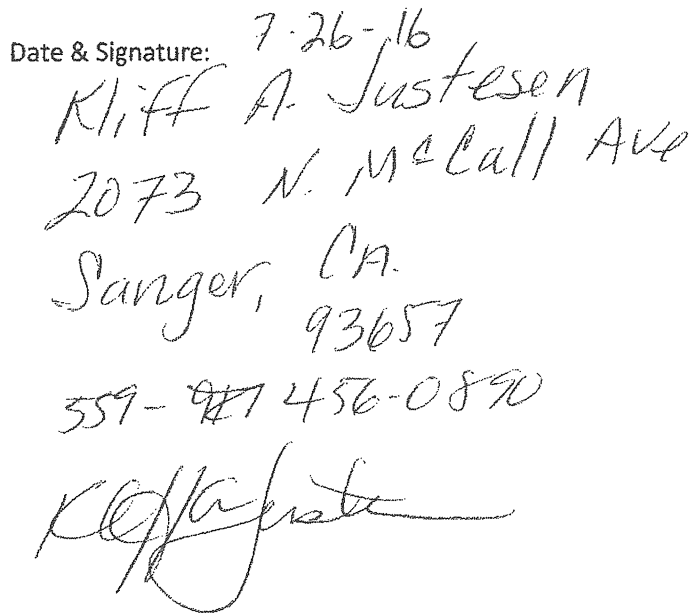 Date & Signature: 7-26-16
Kliff A. Justesen
2073 N. McCall Ave
Sanger, CA.
93657
559- 456-0890